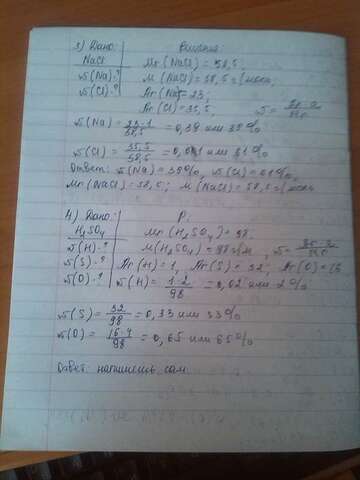 3) Дано:
Решение
NaCl
Mr(NaCl) = 58,5;
w(Na)-?
M(NaCl) = 58,5 г/моль
w(Cl)-?
Ar(Na) = 23;
Ar(Cl) = 35,5;
w(Na) = 23·1/58,5 = 0,39 или 39%
w(Cl) = 35,5/58,5 = 0,61 или 61%
Ответ: w(Na) = 39%, w(Cl) = 61%,
Mr(NaCl) = 58,5; M(NaCl) = 58,5 г/моль
4) Дано:
Р:
H2SO4
Mr(H2SO4) = 98
w(H)-?
M(H2SO4) = 98 г/м,
w(S)-?
Ar(H) = 1, Ar(S) = 32; Ar(O) = 16
w(O)-?
w(H) = 1·2/98 = 0,02 или 2%
w(S) = 32/98 = 0,33 или 33%
w(O) = 16·4/98 = 0,65 или 65%
Ответ: напишешь сам